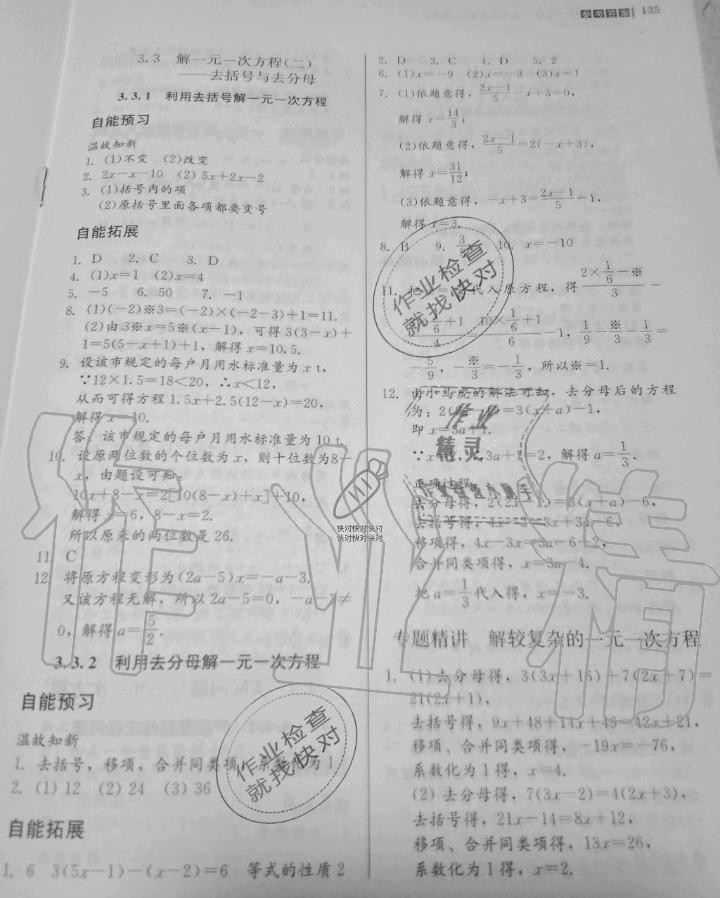 参考答案 135
3.3 解一元一次方程(二)
——去括号与去分母
3.3.1 利用去括号解一元一次方程
自能预习
温故知新
1. (1)不变 (2)改变
2. 2x-x-10 (2)5x+2x-2
3. (1)括号内的项
(2)原括号里面各项都要变号
自能拓展
1. D 2. C 3. D
4. (1)x=1 (2)x=4
5. -5 6. 50 7. -1
8. (1)(-2)※3=(-2)×(-2-3)+1=11.
(2)由3※x=5※(x-1), 可得3(3-x)+
1=5(5-x+1)+1, 解得x=10.5.
9. 设该市规定的每户月用水标准量为x t,
∵12×1.5=18<20, ∴x<12,
从而可得方程1.5x+2.5(12-x)=20,
解得x=10.
答: 该市规定的每户月用水标准量为10 t.
10. 设原两位数的个位数为x, 则十位数为8-
x, 由题设可知:
10x+8-x=2[10(8-x)+x]+10,
解得x=6, 8-x=2.
所以原来的两位数是26.
11. C
12. 将原方程变形为(2a-5)x=-a-3.
又该方程无解, 所以2a-5=0, -a-3≠
0, 解得a=5/2.
3.3.2 利用去分母解一元一次方程
自能预习
温故知新
1. 去括号, 移项, 合并同类项, 系数化为1
2. (1)12 (2)24 (3)36
自能拓展
1. 6 3(5x-1)-(x-2)=6 等式的性质2
2. D 3. C 4. D 5. 2
6. (1)x=-9 (2)x=-3 (3)x=1
7. (1)依题意得, (2x-1)/5-x+3=0,
解得x=14/3;
(2)依题意得, (2x-1)/5=2(-x+3),
解得x=31/12;
(3)依题意得, -x+3=(2x-1)/5-1,
解得x=3.
8. B 9. 10. x=-10
11. 代入原方程, 得 (2×1/6-※)/3 -
-1, 1/9-※/3-1/3=
-5/9, -※/3=-1/3, 所以※=1.
12. 由小马虎的解法可知, 去分母后的方程
为: =3(x+a)-1,
即x=3a+1.
∵x=2, 3a+1=2, 解得a=1/3.
正确过程:
去分母得, 2(2x-1)=3(x+a)-6,
去括号得, 4x-2=3x+3a-6,
移项得, 4x-3x=3a-6+2,
合并同类项得, x=3a-4.
把a=1/3代入得, x=-3.
专题精讲 解较复杂的一元一次方程
1. (1)去分母得, 3(3x+16)+7(2x+7)=
21(2x+1),
去括号得, 9x+48+14x+49=42x+21,
移项、合并同类项得, -19x=-76,
系数化为1得, x=4.
(2)去分母得, 7(3x-2)=4(2x+3),
去括号得, 21x-14=8x+12,
移项、合并同类项得, 13x=26,
系数化为1得, x=2.
作业检查
就找快对
作业检查
就找快对
快对快对快对
快对快对快对
作业
精灵
作业
精